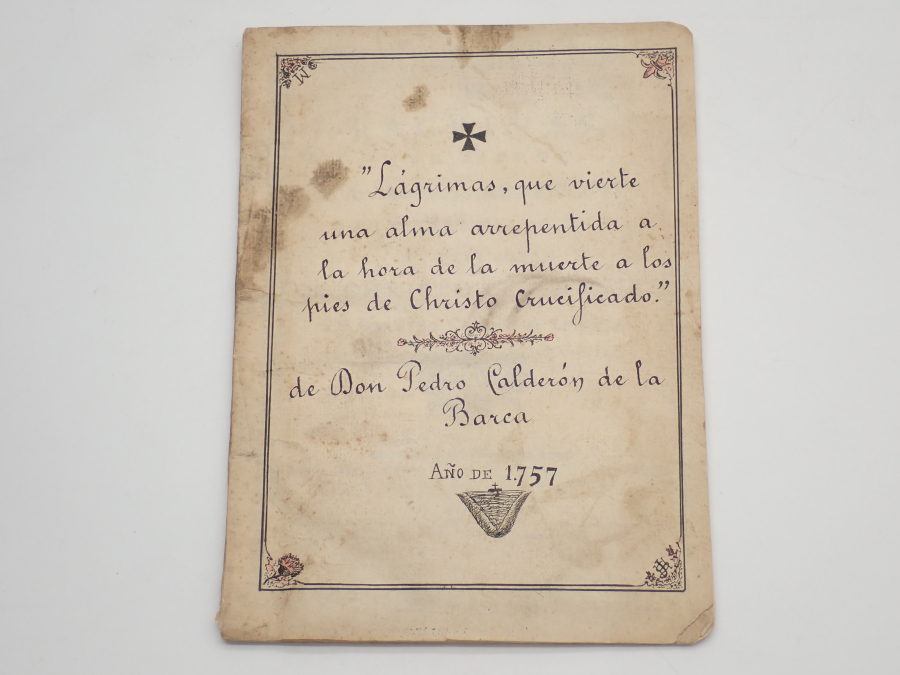 "Lágrimas, que vierte
una alma arrepentida a
la hora de la muerte a los
pies de Christo Crucificado."
de Don Pedro Calderón de la
Barca
AÑO DE 1.757